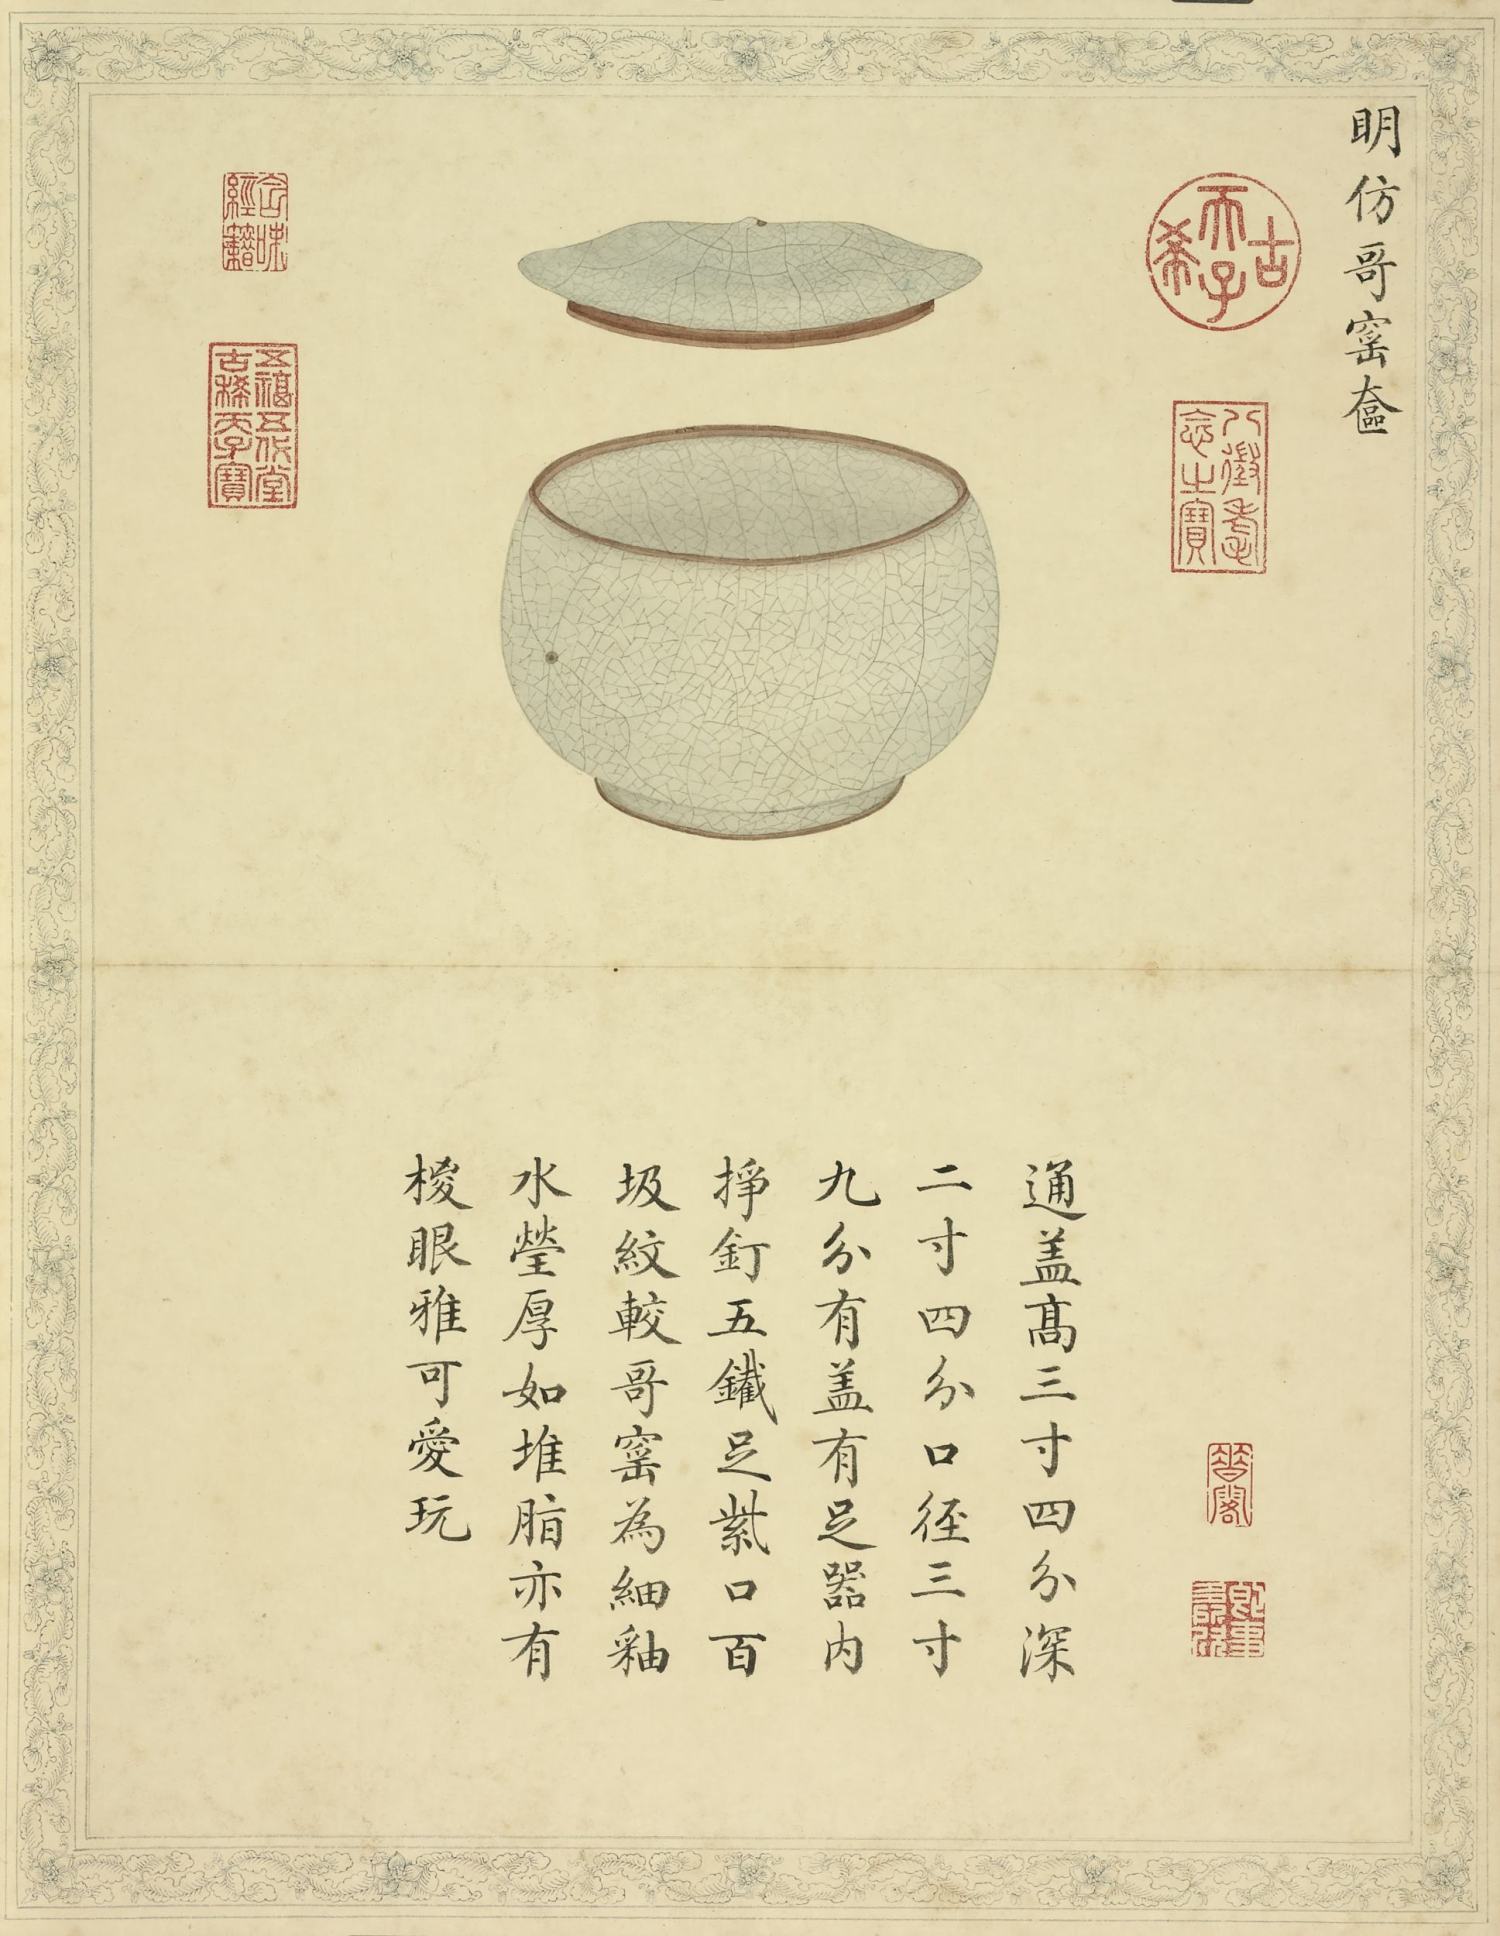 明仿哥窑奩
古希天子
八徵耄念之寶
五福五代堂古稀天子寶
含味經籍
通盖高三寸四分深
二寸四分口徑三寸
九分有盖有足器内
掙釘五鐵足紫口百
圾紋較哥窑為細釉
水瑩厚如堆脂亦有
椶眼雅可愛玩